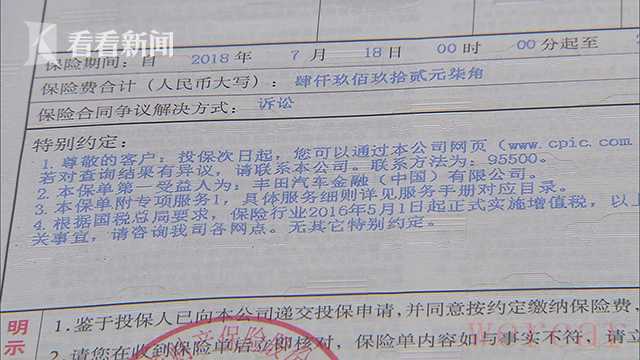 看看新闻
保险期间：自 2018 年 7 月 18 日 00 时 00 分起至
保险费合计（人民币大写）：肆仟玖佰玖拾贰元柒角
保险合同争议解决方式：诉讼
特别约定：
1. 尊敬的客户：投保次日起，您可以通过本公司网页（www.cpic.com
若对查询结果有异议，请联系本公司。联系方法为：95500。
2. 本保单第一受益人为：丰田汽车金融（中国）有限公司。
3. 本保单附专项服务1，具体服务细则详见服务手册对应目录。
4. 根据国税总局要求，保险行业2016年5月1日起正式实施增值税，以上
关事宜，请咨询我司各网点。无其它特别约定。
明示
1. 鉴于投保人已向本公司递交投保申请，并同意按约定缴纳保险费，
2. 请您在收到保险单后立即核对，保险单内容如与事实不符，请立